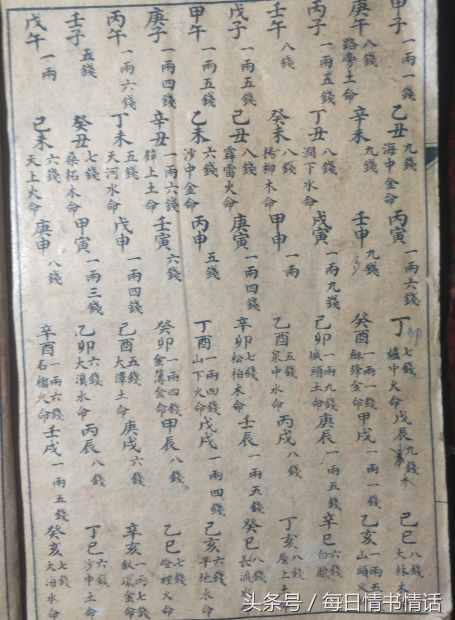 甲子 一兩一錢 乙丑 九錢 海中金命 丙寅 一兩六錢 丁卯 七錢 爐中火命 戊辰 九錢 己巳 八錢 大林木
庚午 八錢 路傍土命 辛未 九錢 壬申 九錢 癸酉 一兩一錢 鋒金命 甲戌 一兩一錢 乙亥 一兩五 山頭
丙子 一兩五錢 丁丑 八錢 澗下水命 戊寅 一兩九錢 己卯 一兩九錢 城頭土命 庚辰 一兩五錢 辛巳 六錢 白臘
壬午 八錢 癸未 八錢 楊柳木命 甲申 一兩 乙酉 五錢 泉中水命 丙戌 八錢 丁亥 八錢 屋上土
戊子 一兩五錢 己丑 八錢 霹雷火命 庚寅 一兩四錢 辛卯 七錢 松柏木命 壬辰 一兩五錢 癸巳 八錢 長流
甲午 一兩五錢 乙未 六錢 沙中金命 丙申 五錢 丁酉 一兩四錢 山下火命 戊戌 一兩四錢 己亥 六錢 平地木命
庚子 一兩四錢 辛丑 一兩六錢 上土命 壬寅 六錢 癸卯 一兩四錢 金箔金命 甲辰 八錢 乙巳 七錢 燈火命
丙午 一兩六錢 丁未 五錢 天河水命 戊申 一兩四錢 己酉 五錢 大澤土命 庚戌 六錢 辛亥 一兩七錢 釵環金命
壬子 五錢 癸丑 七錢 桑柘木命 甲寅 一兩三錢 乙卯 六錢 大溪水命 丙辰 八錢 丁巳 六錢 沙中土命
戊午 一兩 己未 六錢 天上火命 庚申 八錢 辛酉 一兩六錢 石榴火命 壬戌 一兩五錢 癸亥 七錢 大海水命
头条号 / 每日情书情话